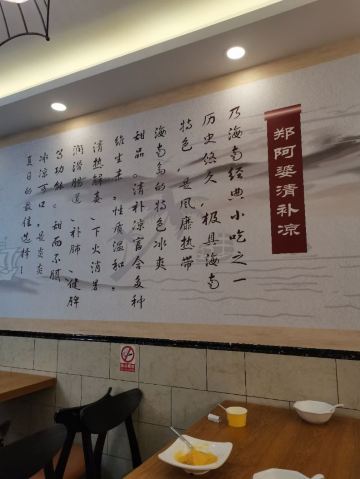 郑阿婆清补凉
乃海南经典小吃之一
历史悠久,极具海南
特色,是风靡热带
海南岛的特色冰爽
甜品。清补凉富含多种
维生素。性质温和。
清热解毒、下火消暑
润滑肠道、补肺、健脾
等功能。甜而不腻
冰凉可口,是炎炎
夏日的最佳选择!